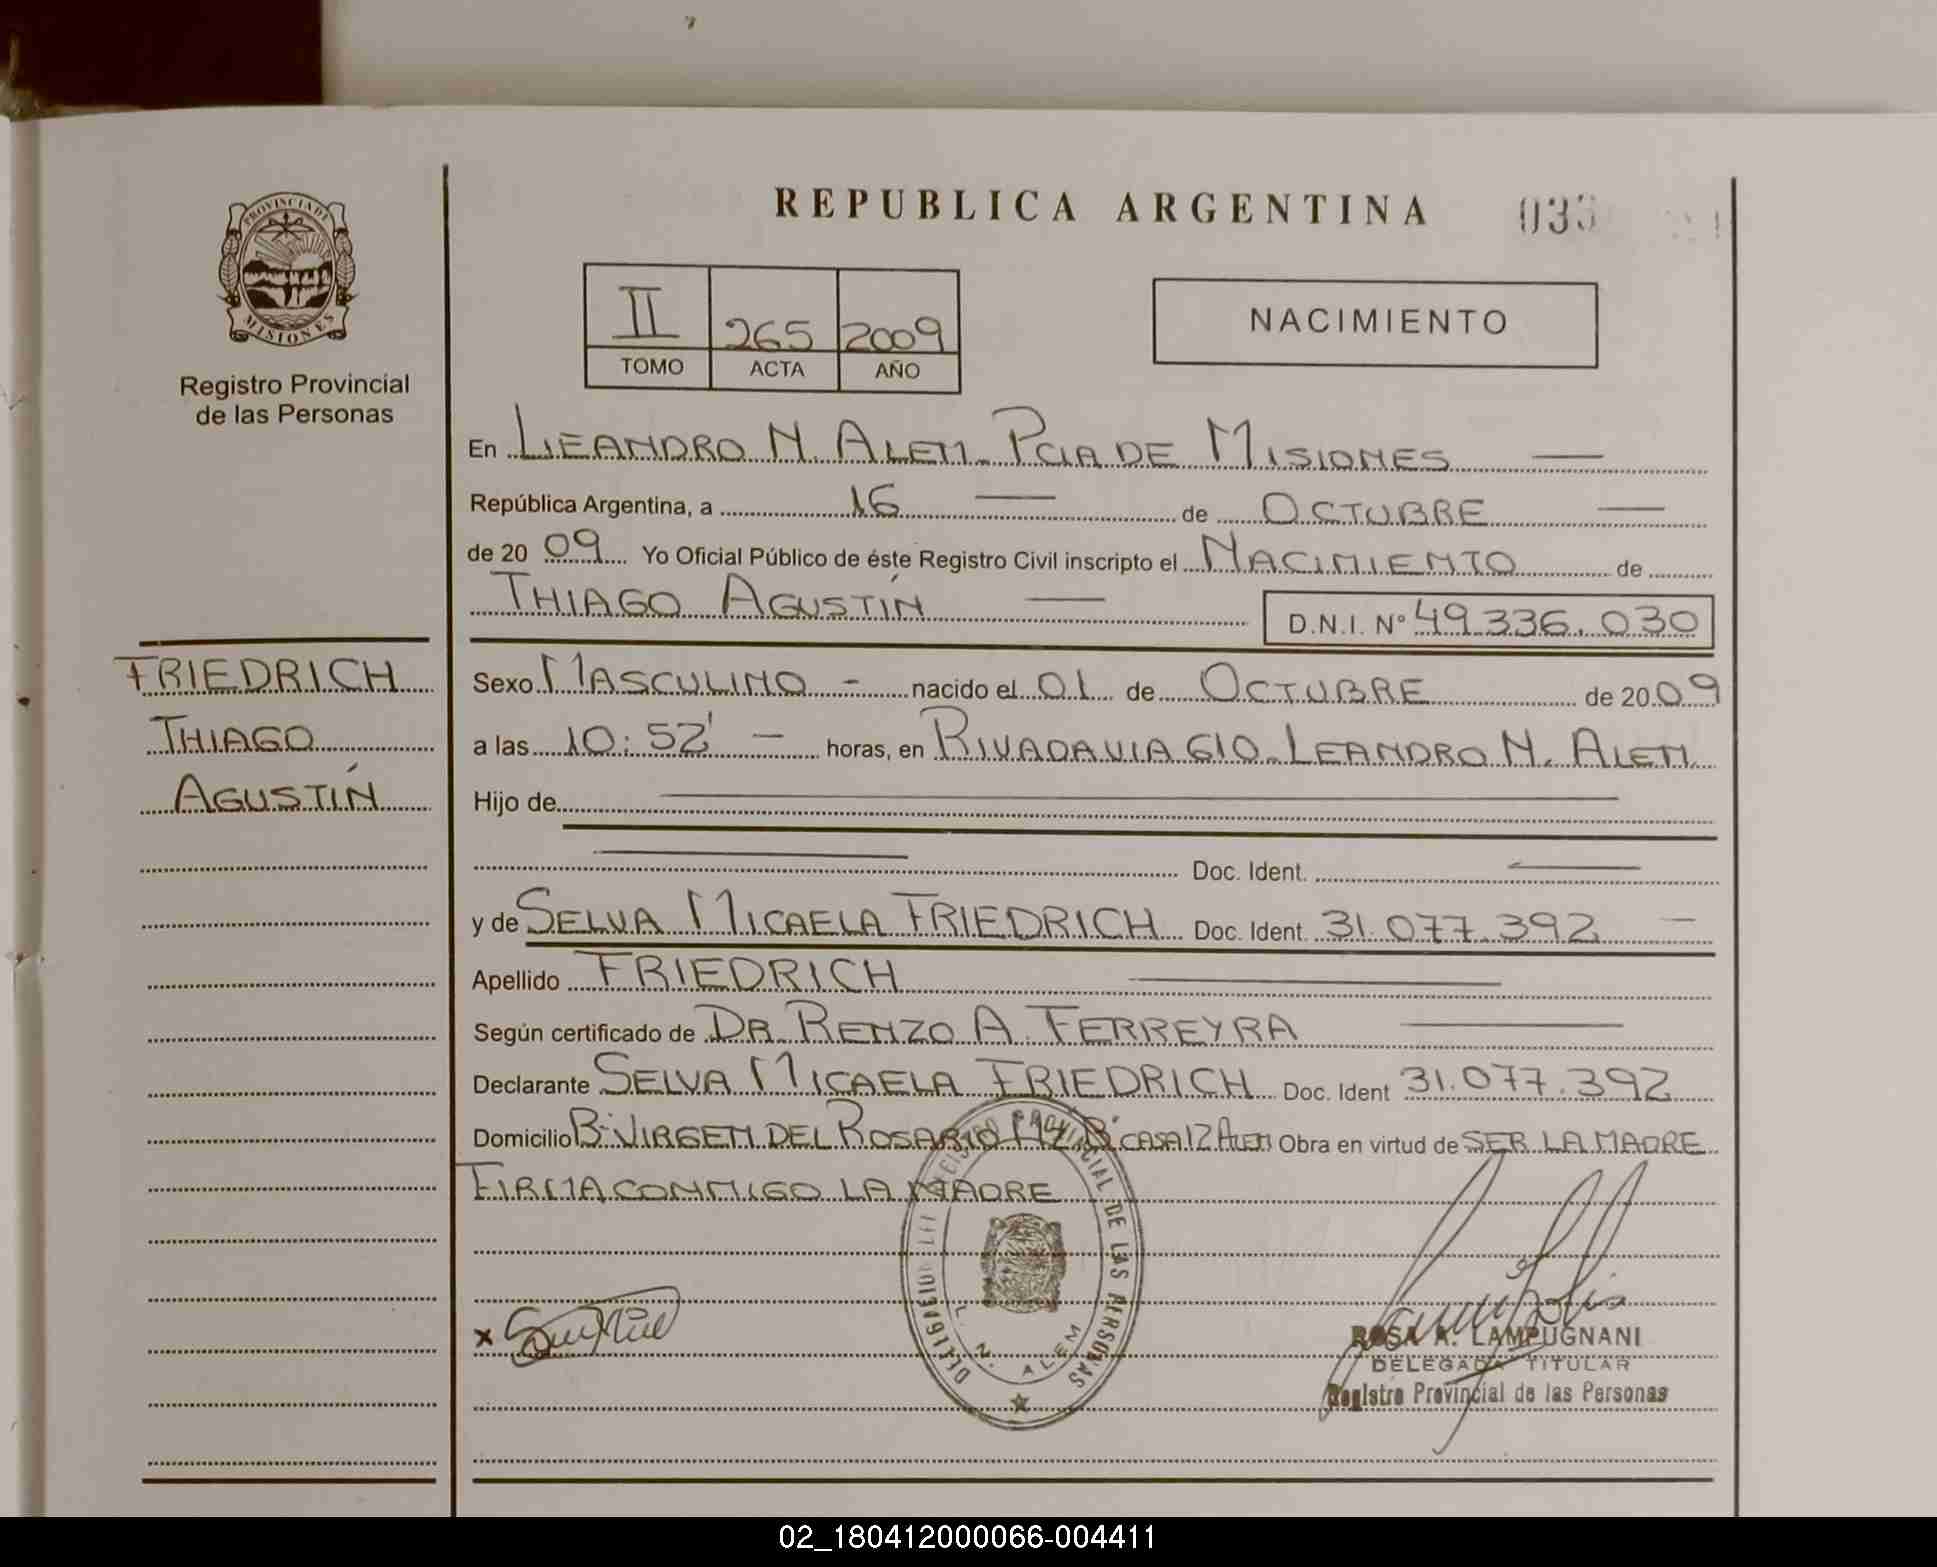 REPUBLICA ARGENTINA
PROVINCIA DE
MISIONES
Registro Provincial
de las Personas
II 265 2009
TOMO ACTA AÑO
NACIMIENTO
En LEANDRO N. ALEM. PCIA DE MISIONES
República Argentina, a 16 de OCTUBRE
de 20 09 Yo Oficial Público de éste Registro Civil inscripto el NACIMIENTO de
THIAGO AGUSTÍN D.N.I. Nº 49.336.030
FRIEDRICH
THIAGO
AGUSTÍN
Sexo MASCULINO - nacido el 01 de OCTUBRE de 20 09
a las 10:52' horas, en RIVADAVIA 610. LEANDRO N. ALEM
Hijo de
Doc. Ident.
y de SELVA MICAELA FRIEDRICH Doc. Ident. 31.077.392
Apellido FRIEDRICH
Según certificado de DR. RENZO A. FERREYRA
Declarante SELVA MICAELA FRIEDRICH Doc. Ident 31.077.392
Domicilio Bº VIRGEN DEL ROSARIO MZ B' CASA 12 ALEM Obra en virtud de SER LA MADRE
FIRMA CONMIGO LA MADRE
DELEGACION DEL REGISTRO PROVINCIAL DE LAS PERSONAS
L. N. ALEM
ROSA A. LAMPUGNANI
DELEGADA TITULAR
Registro Provincial de las Personas
02_180412000066-004411